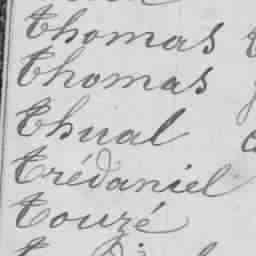 Thomas
Thomas
Thual
Trédaniel
Touzé